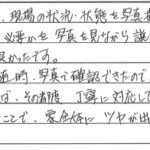 、現場の状況・状態を写真撮
必要かを写真を見ながら説
良かったです。
適時、写真で確認できたので
ば、その都度 丁寧に対応して
ことで、家全体に ツヤが出